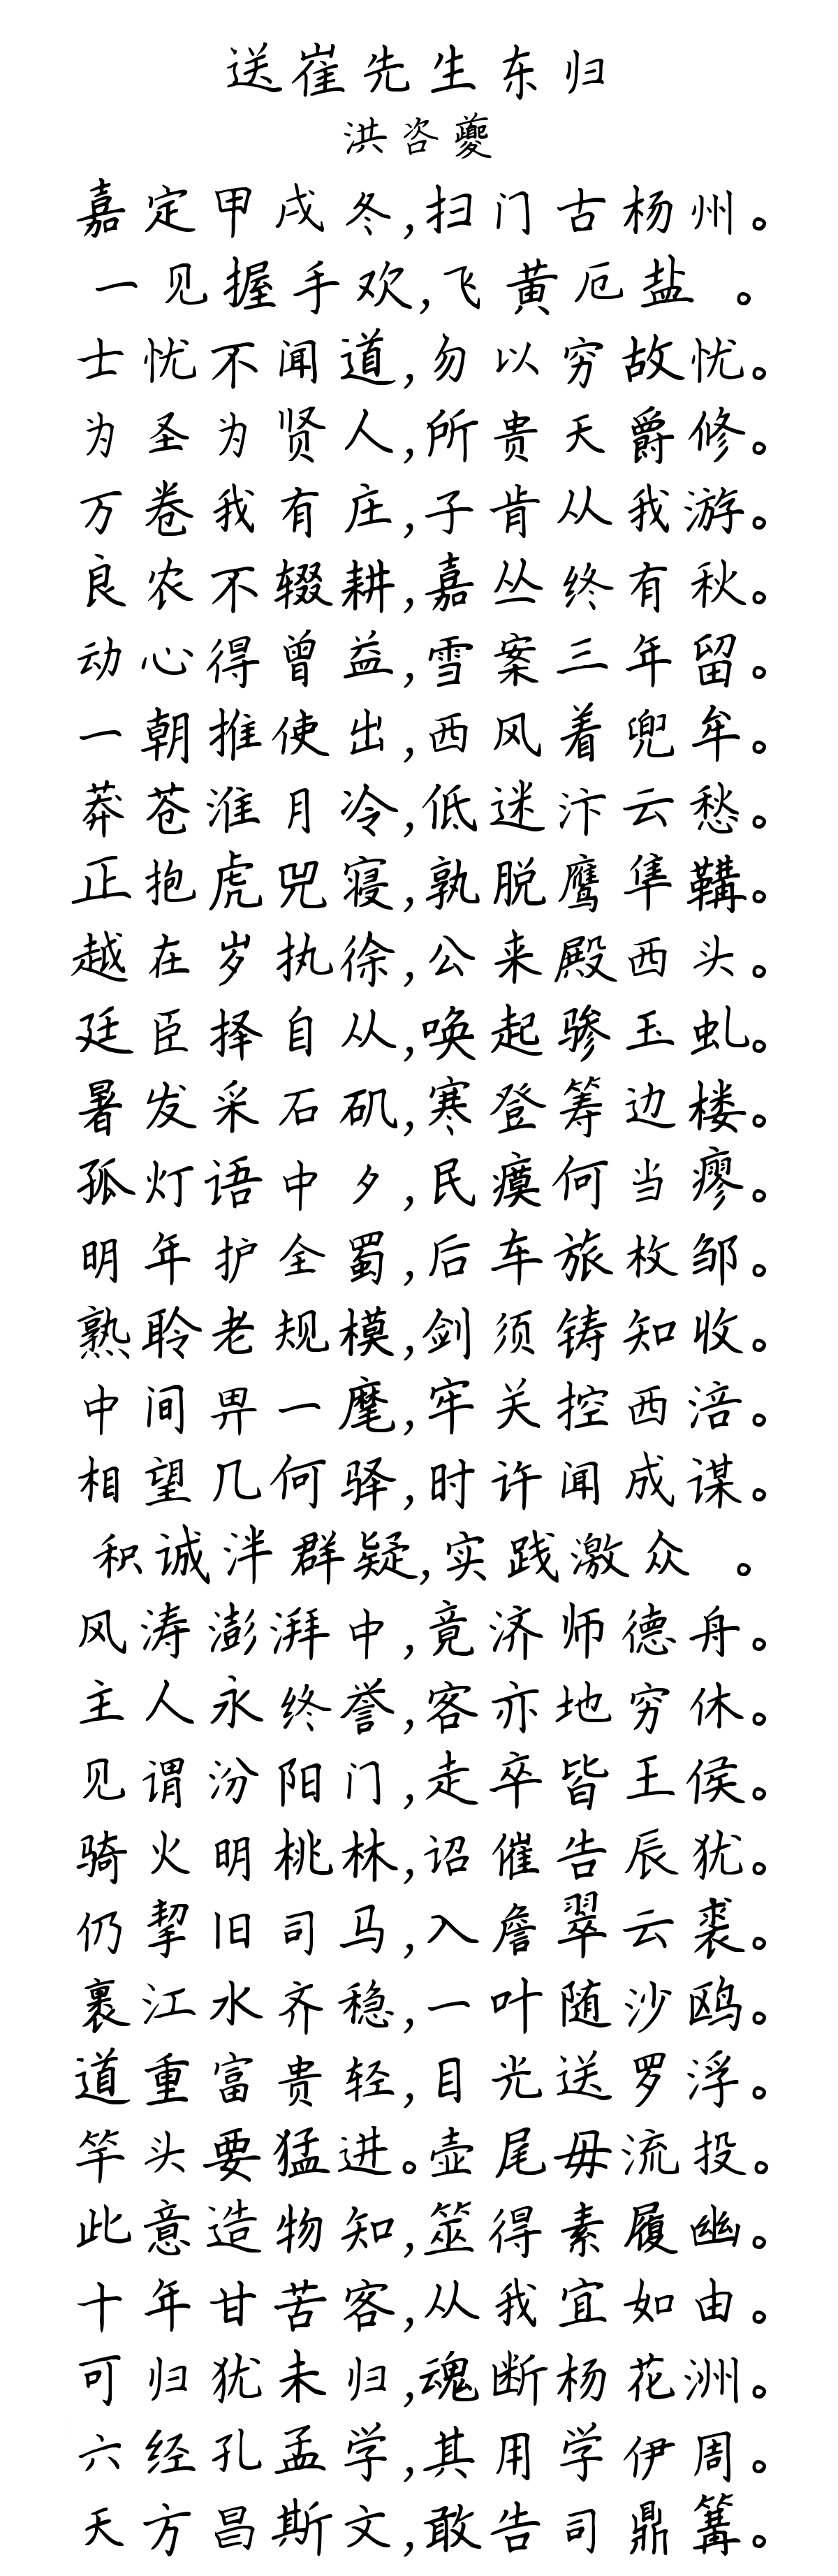 送崔先生东归
洪咨夔
嘉定甲戌冬,扫门古杨州。
一见握手欢,飞黄厄盐 。
士忧不闻道,勿以穷故忧。
为圣为贤人,所贵天爵修。
万卷我有庄,子肯从我游。
良农不辍耕,嘉丛终有秋。
动心得曾益,雪案三年留。
一朝推使出,西风着兜牟。
莽苍淮月冷,低迷汴云愁。
正抱虎兕寝,孰脱鹰隼鞲。
越在岁执徐,公来殿西头。
廷臣择自从,唤起骖玉虬。
暑发采石矶,寒登筹边楼。
孤灯语中夕,民瘼何当瘳。
明年护全蜀,后车旅枚邹。
熟聆老规模,剑须铸知收。
中间畀一麾,牢关控西涪。
相望几何驿,时许闻成谋。
积诚泮群疑,实践激众 。
风涛澎湃中,竟济师德舟。
主人永终誉,客亦地穷休。
见谓汾阳门,走卒皆王侯。
骑火明桃林,诏催告辰犹。
仍挈旧司马,入詹翠云裘。
裹江水齐稳,一叶随沙鸥。
道重富贵轻,目光送罗浮。
竿头要猛进。壶尾毋流投。
此意造物知,筮得素履幽。
十年甘苦客,从我宜如由。
可归犹未归,魂断杨花洲。
六经孔孟学,其用学伊周。
天方昌斯文,敢告司鼎篝。